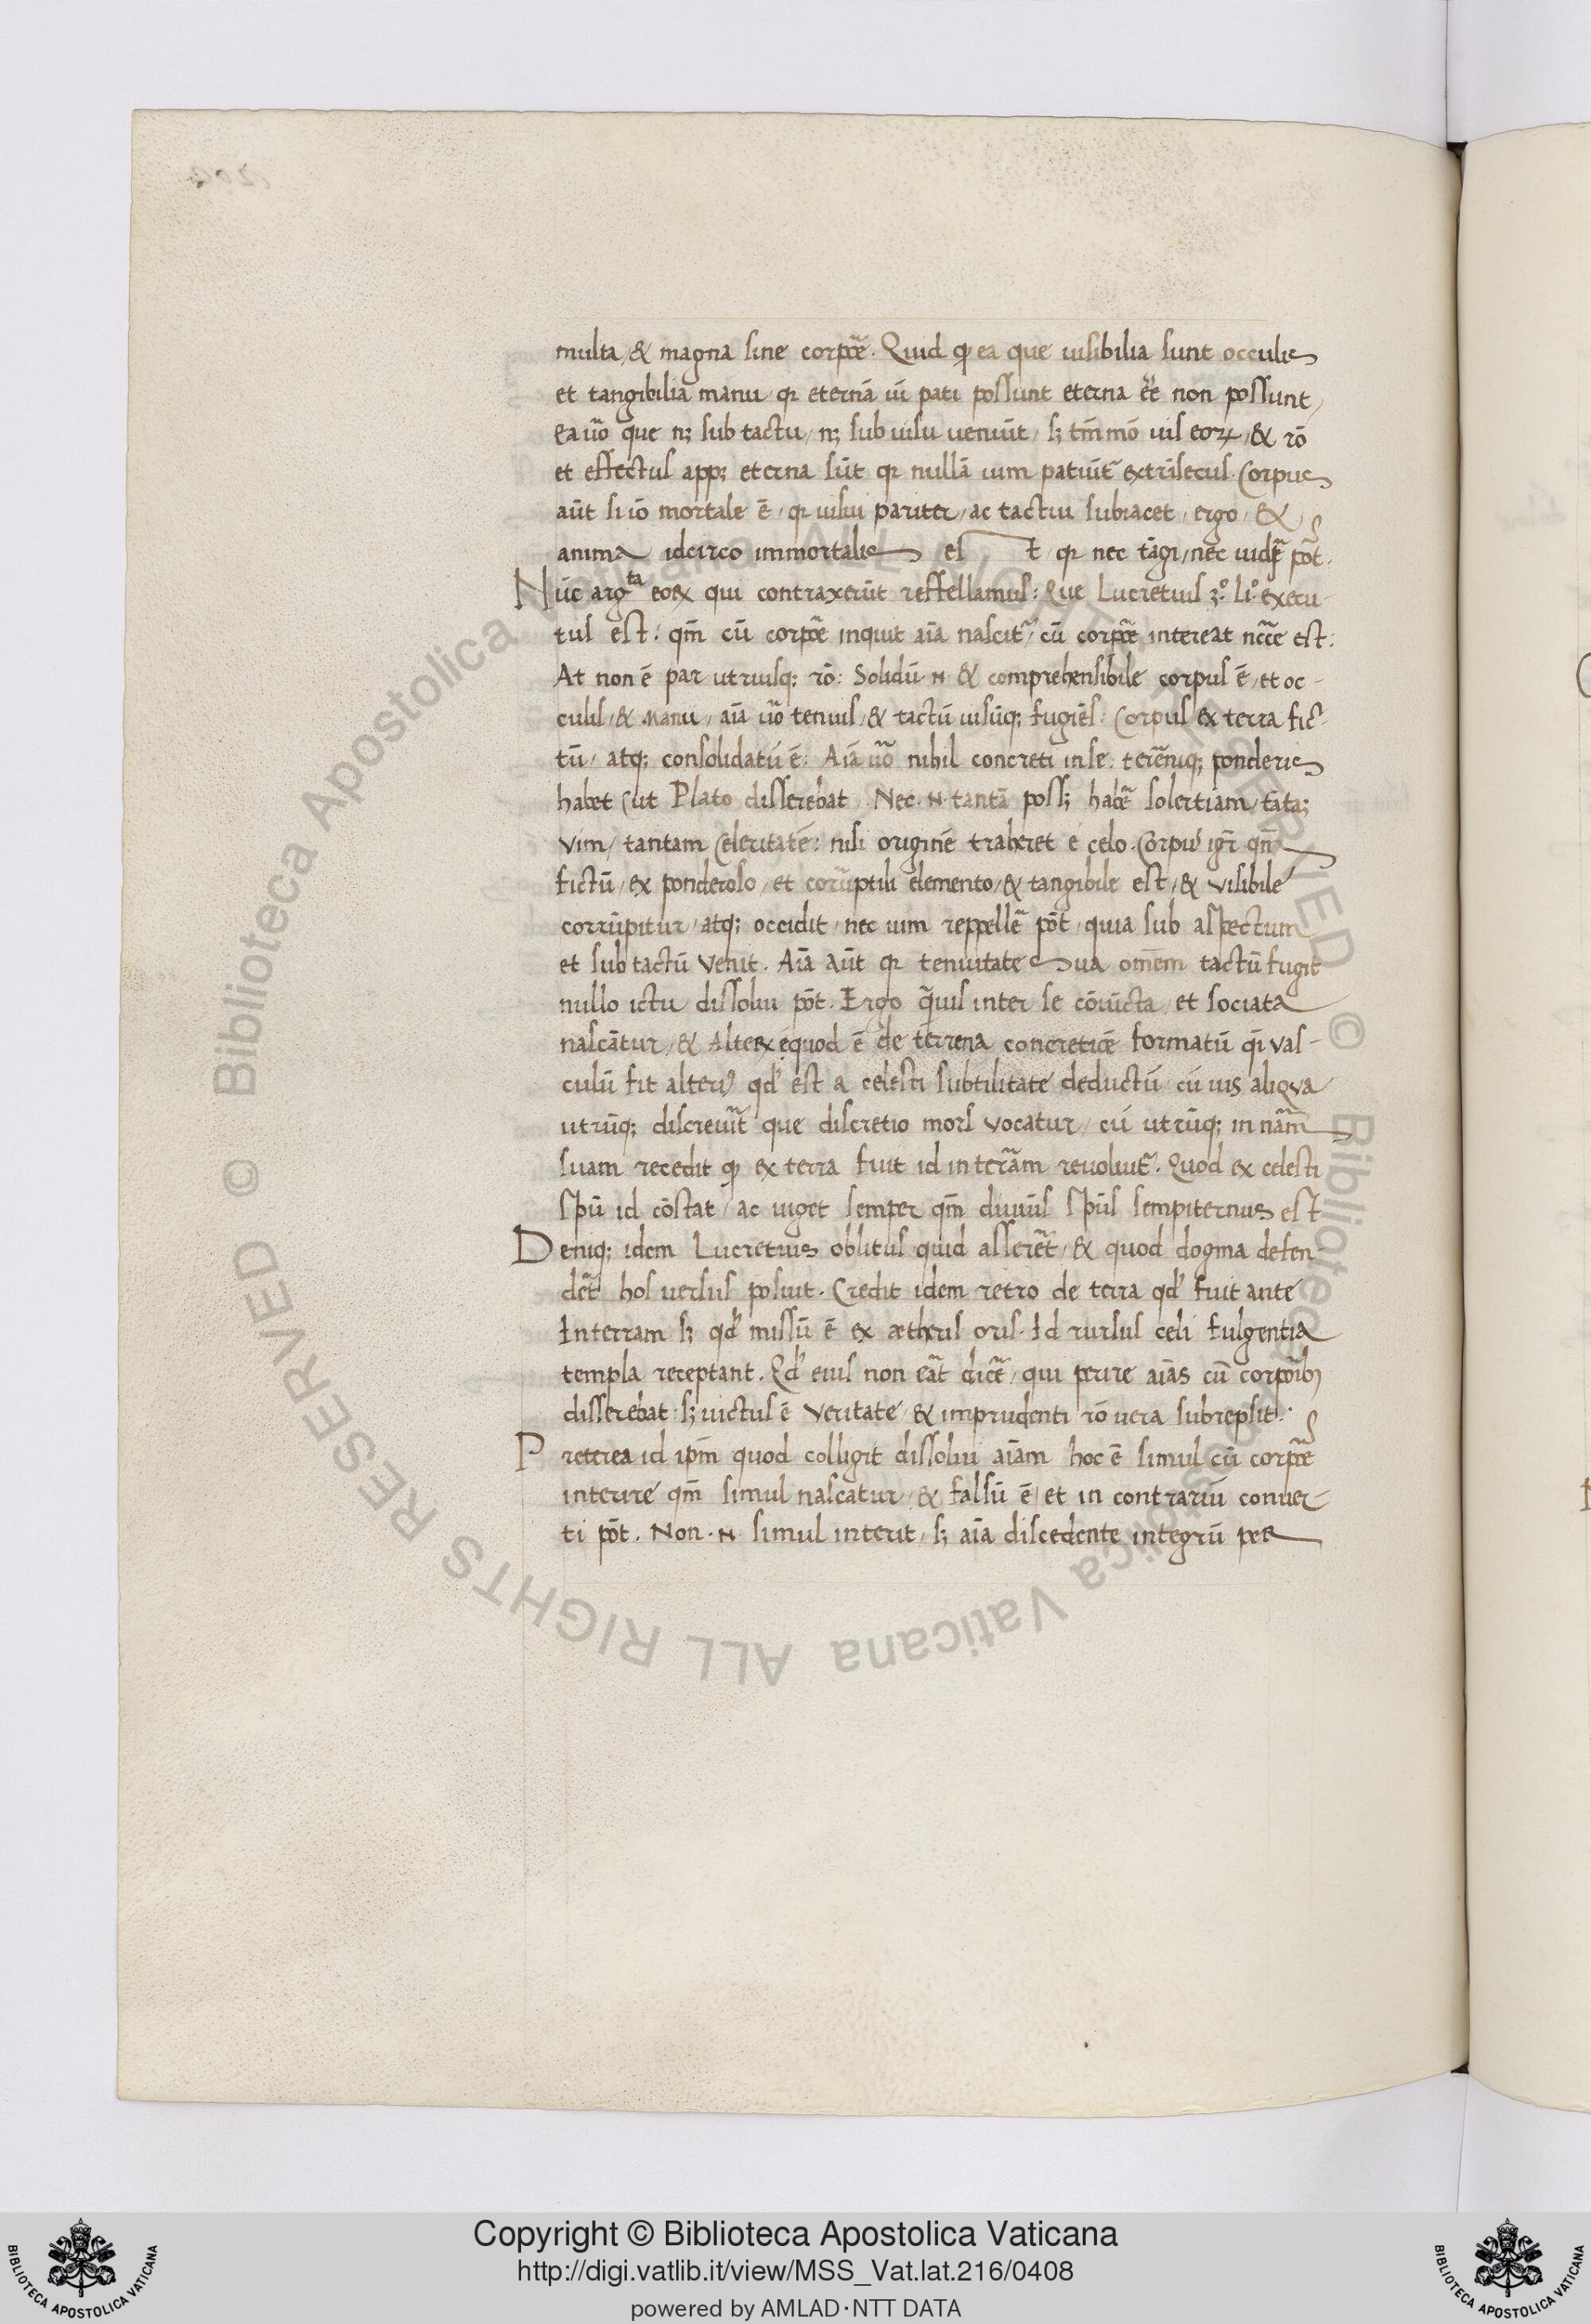 multa, & magna sine corpꝑe. Quid ꝙ ea que uisibilia sunt occulis
et tangibilia manu qꝛ eternā uī pati possunt eterna eē non possunt,
ea ūo que nꝫ sub tactu, nꝫ sub uisu ueniūt, sꝫ tm̄mō uis eoꝝ, & rō
et effectus appꝫ eterna sūt qꝛ nullā uim patiūt̄ extrīsecus. Corpus
aūt si iō mortale ē, qꝛ uisui pariter, ac tactui subiacet, ergo, &
anima idcirco immortalis est, qꝛ nec tāgi, nec uidēr pōt.
Nūc argᵗᵃ eoꝝ qui contraxerūt reffellamus: Que Lucretius 3º. liº. execu-
tus est. qm̄ cū corpꝑe inquit aīa nascit̄, cū corpꝑe intereat nēcē est:
At non ē par utriusqꝫ rō: Solidū .n. & comprehensibile corpus ē, et oc-
culis, & manu, aīa ūo tenuis, & tactū uisūqꝫ fugiēs. Corpus ex terra fic-
tū, atqꝫ consolidatū ē. Aīa ūo nihil concreti in se. terrēniqꝫ ponderis
habet, ut Plato disserebat. Nec .n. tantā possꝫ habēr solertiam, tātaꝫ
vim, tantam celeritatē: nisi originē traheret e celo. Corpus igr̄ qm̄
fictū, ex ponderoso, et coruptili elemento, & tangibile est, & visibile
corrūpitur, atqꝫ occidit, nec uim reppellēr pōt, quia sub aspectum
et sub tactū venit. Aīa aūt qꝛ tenuitate sua omēm tactū fugit
nullo ictu dissolui pōt. Ergo q̄uis inter se cōiūcta, et sociata
nascātur, & alteꝝ equod ē de terrena concretiōe formatū q̄i vas-
culū sit alteriꝰ qđ est a celesti subtilitate deductū cū uis aliqva
utrūqꝫ discreuīt que discretio mors vocatur, cū utrūqꝫ in nām
suam recedit ꝙ ex terra fuit id in terām reuoluit̄. Quod ex celesti
spū id cōstat, ac uiget semper qm̄ diuiūs spūs sempiternus est
Deniqꝫ idem Lucretius oblitus quid asserēt, & quod dogma defen-
dēt hos uersus posuit. Credit idem retro de terra qđ fuit ante
In terram sꝫ qđ missū ē ex ætheris oris. Id rursus celi fulgentia
templa receptant. Qđ eius non eāt dicē, qui perire aīas cū corpōibꝫ
disserebat. sꝫ uictus ē veritate & imprudenti rō uera subrepsit.
Preterea id ipm̄ quod colligit dissolui aīam hoc ē simul cū corpꝑe
interire qm̄ simul nascatur, & falsū ē, et in contrariū conuer-
ti pōt. Non .n. simul interit, sꝫ aīa discedente integrū per
Copyright © Biblioteca Apostolica Vaticana
http://digi.vatlib.it/view/MSS_Vat.lat.216/0408
powered by AMLAD·NTT DATA